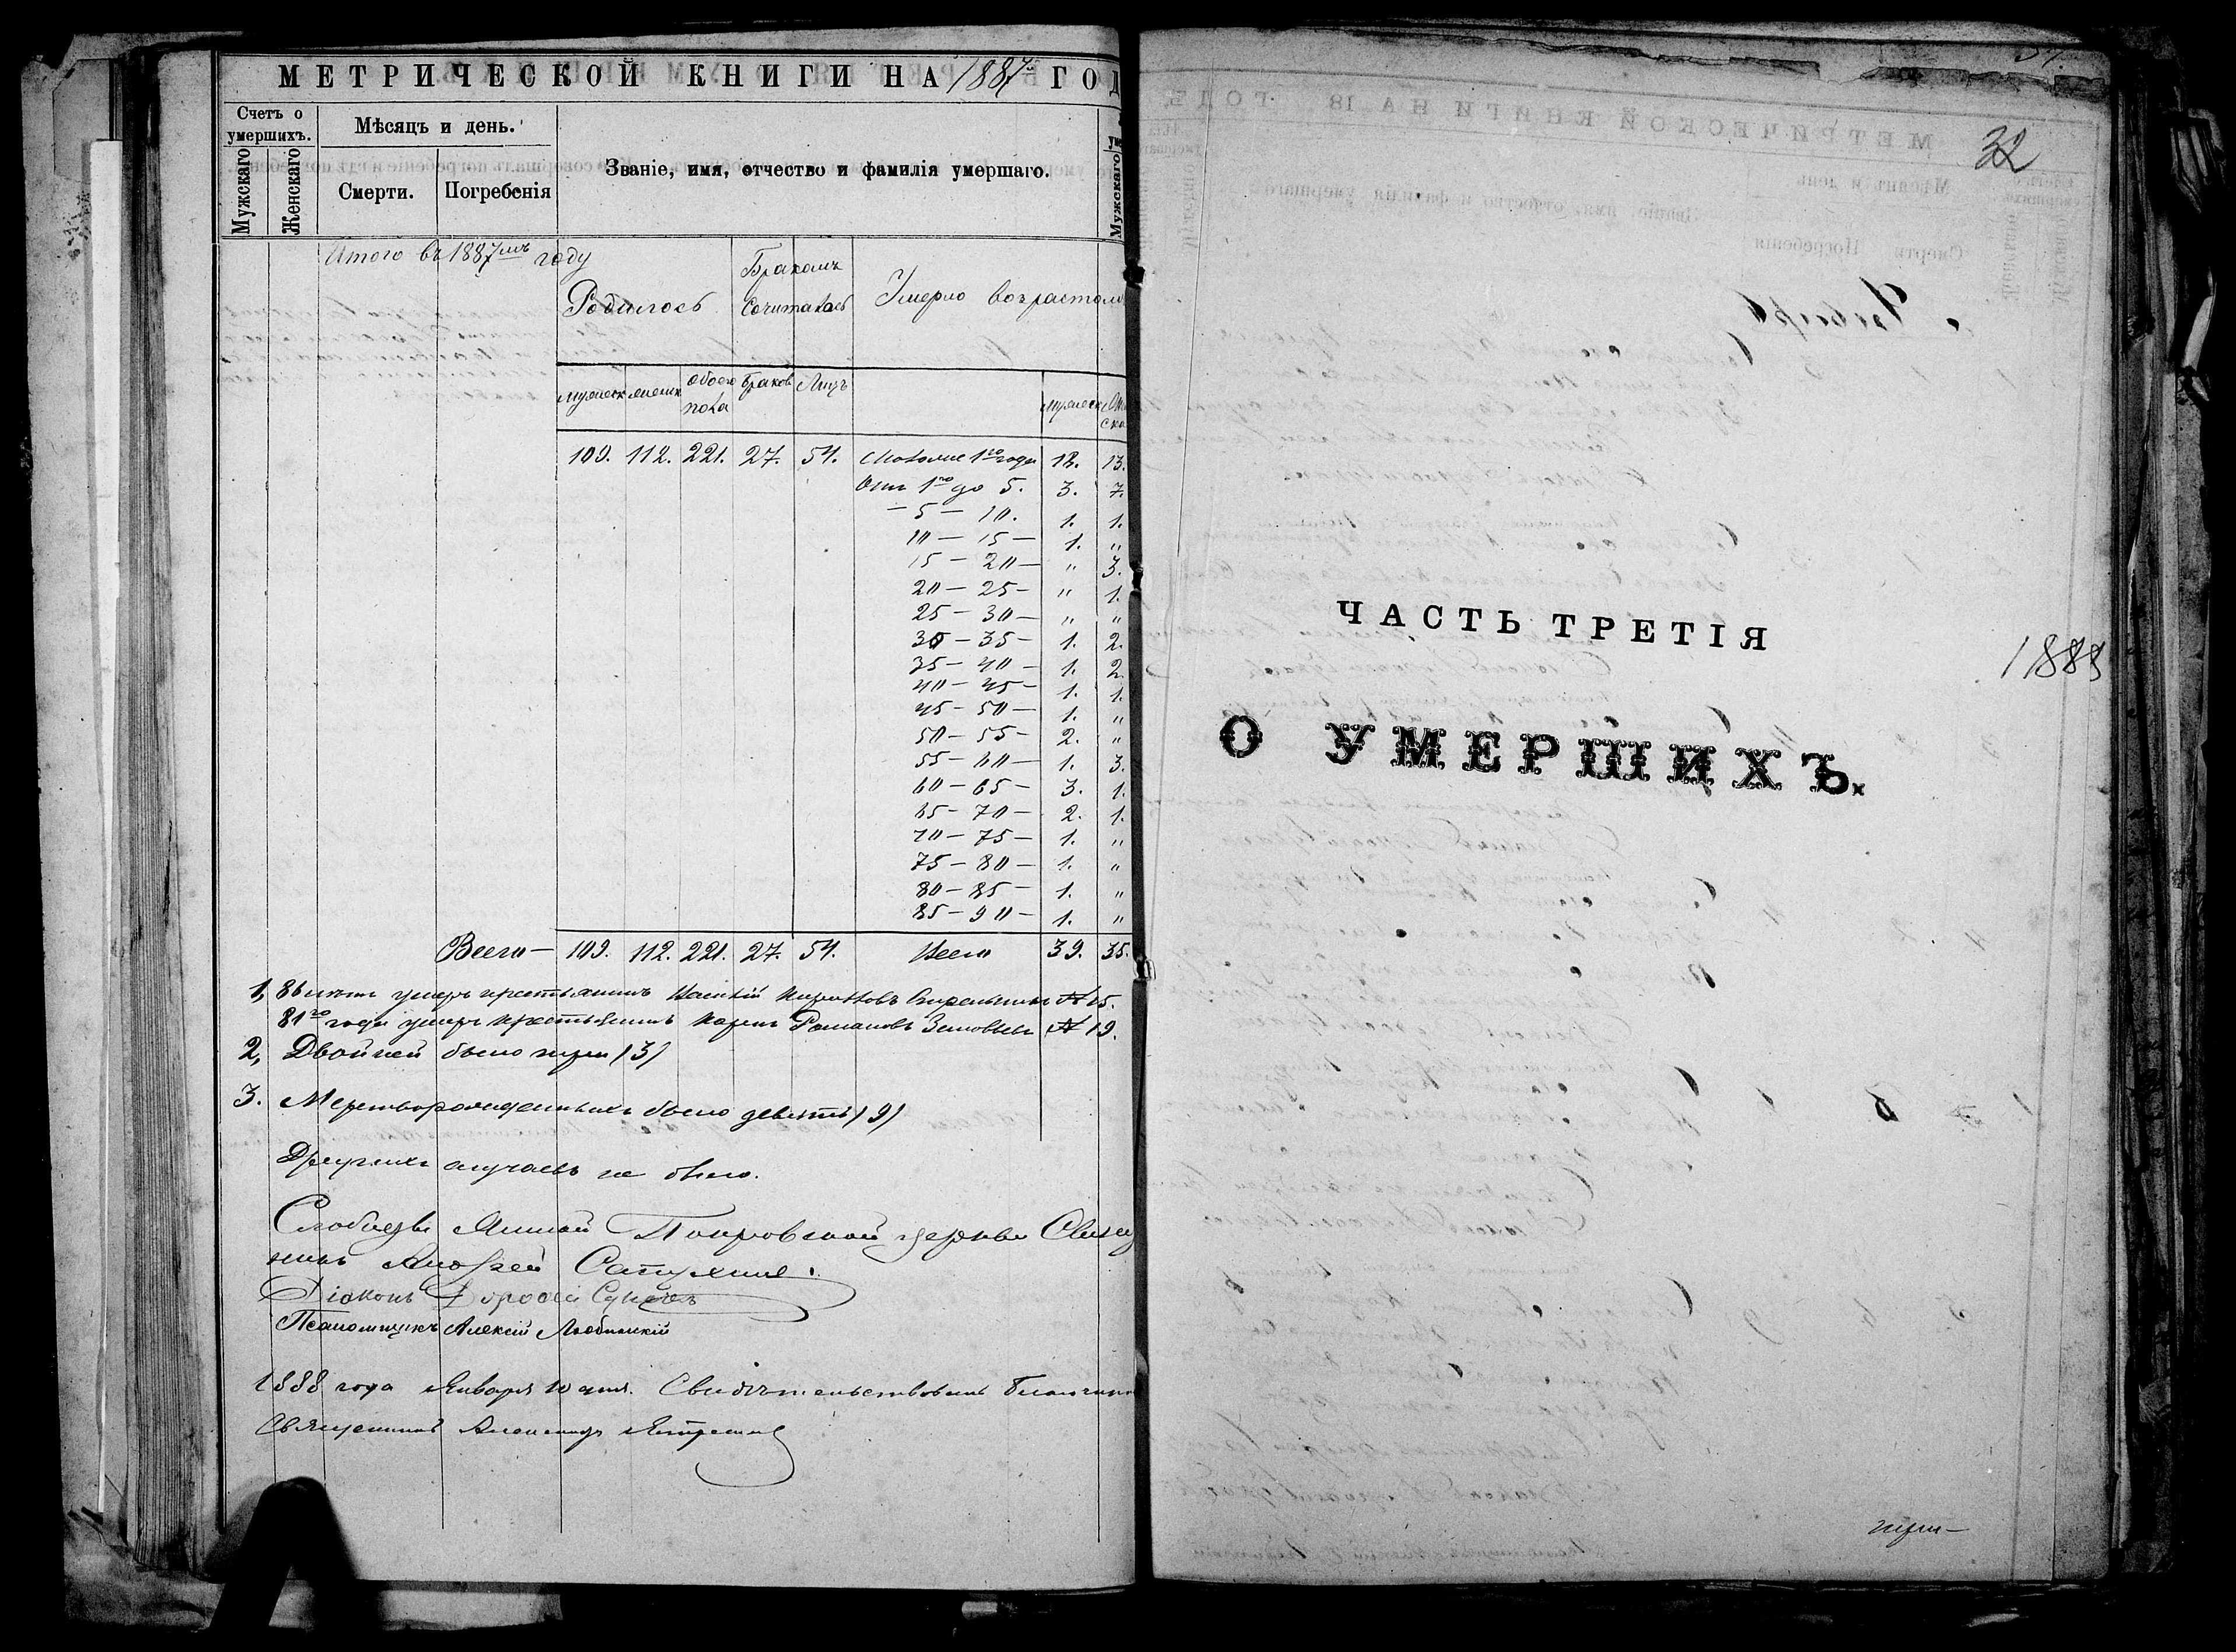 МЕТРИЧЕСКОЙ КНИГИ НА 1887 ГОД
Счетъ о умершихъ.
Мужскаго
Женскаго
Мѣсяцъ и день.
Смерти.
Погребенія
Званіе, имя, отчество и фамилія умершаго.
Мужскаго
Итого въ 1887мъ году
Родилось
Бракомъ сочиталось
Умерло возрастомъ
мужеск женск обоего пола браковъ Лицъ
мужеск
109. 112. 221. 27. 54. 1го года 18. 13.
Отъ 1го до 5. 3. 7.
— 5 — 10. 1. 1.
10 — 15 — 1. "
15 — 20 — " 3.
20 — 25 — " 1.
25 — 30 — " "
30 — 35 — 1. 2.
35 — 40 — 1. 2.
40 — 45 — 1. 1.
45 — 50 — 1. "
50 — 55 — 2. "
55 — 60 — 1. 3.
60 — 65 — 3. 1.
65 — 70 — 2. 1.
70 — 75 — 1. "
75 — 80 — 1. "
80 — 85 — 1. "
85 — 90 — 1. "
Всего — 109. 112. 221. 27. 54. Всего 39. 35.
1, 86 умеръ крестьянинъ № 15.
81го года умеръ крестьянинъ Карпъ Романовъ Зиновьевъ № 19.
2, Двойней было три (3)
3. Мертворожденныхъ было девять (9)
Другихъ случаевъ не было.
Слободзеи Покровской церкви Свящ
никъ Андрей
Діаконъ
Псаломщикъ Алексій
1888 года Января 10 дня. Свидѣтельствовалъ Благочин
Священникъ Александръ
32
ЧАСТЬ ТРЕТІЯ
1888
О УМЕРШИХЪ.